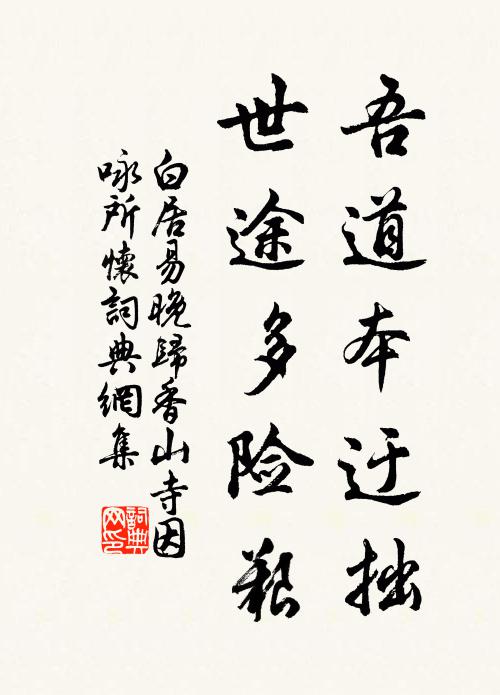 吾道本迂拙
世途多险艱
白居易晚歸香山寺因
咏所懷詞典網集
詞典
网印